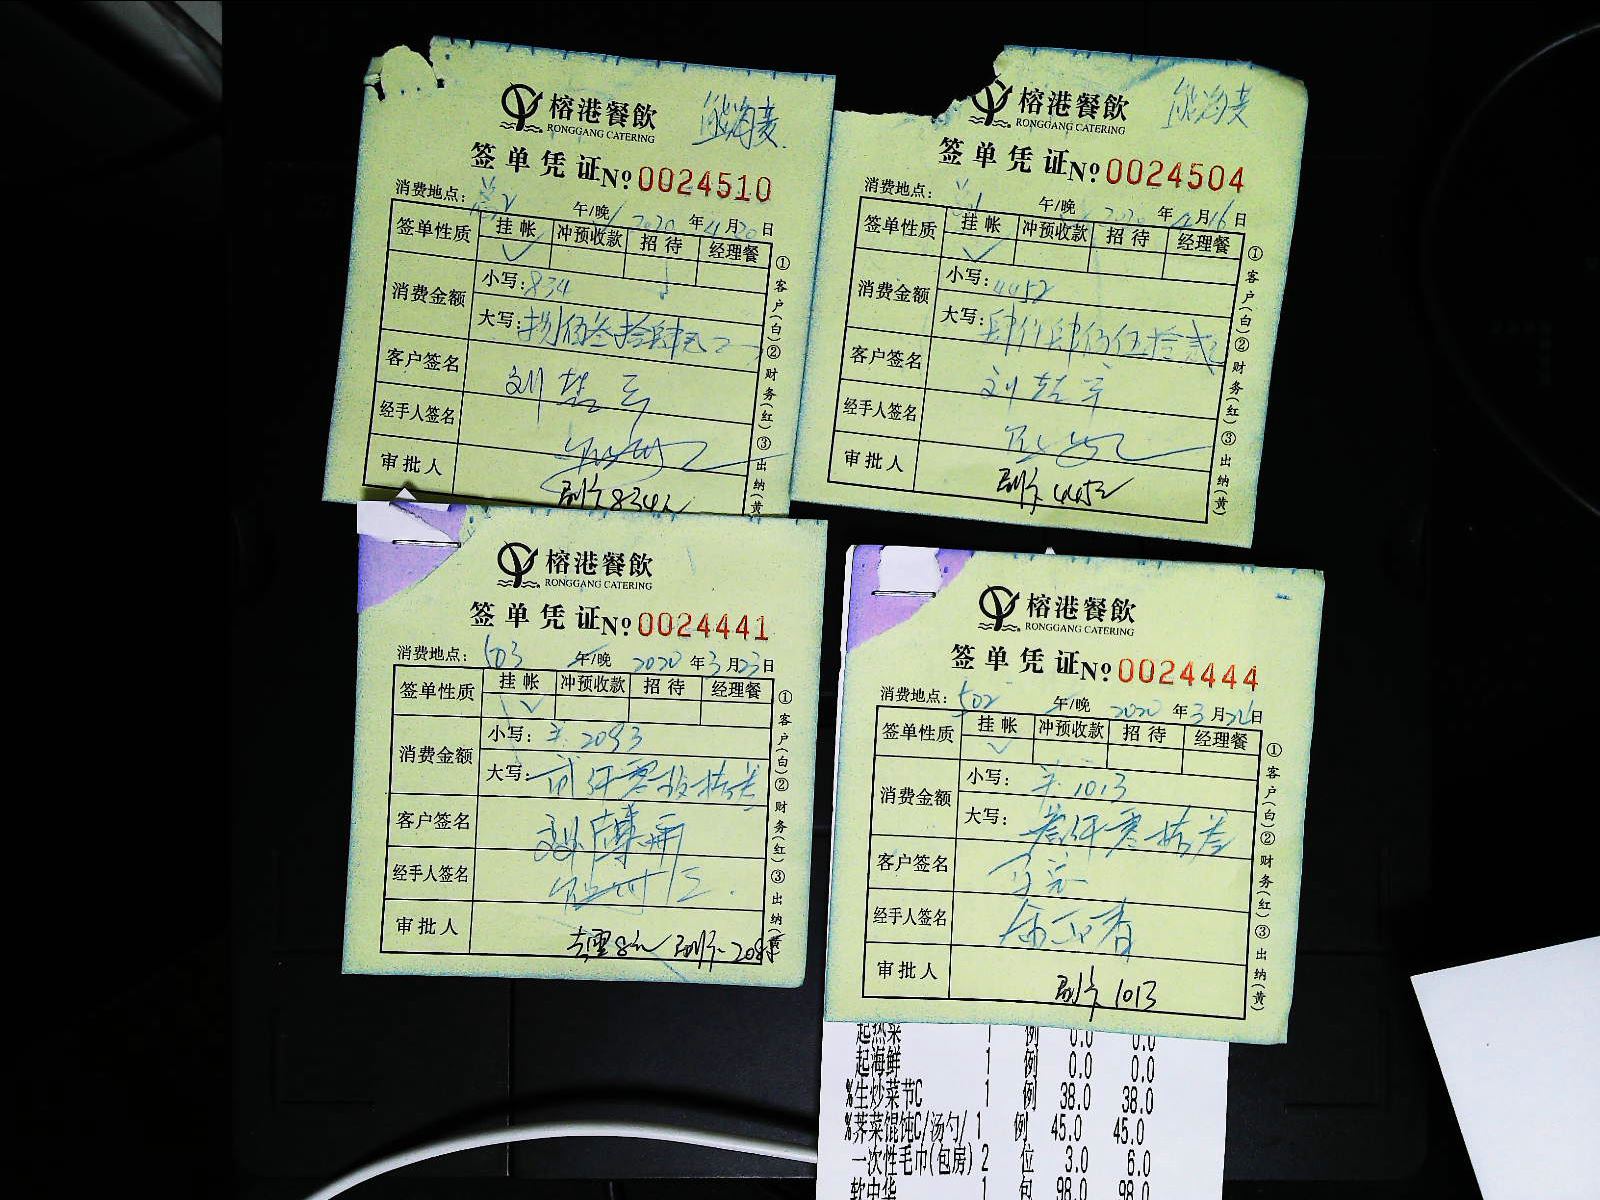 榕港餐飲
RONGGANG CATERING
签单凭证 No 0024510
消费地点: 午/晚 2020年4月20日
签单性质 挂帐 冲预收款 招待 经理餐
消费金额 小写:834
大写:捌佰叁拾肆元
客户签名
经手人签名
审批人
刷卡834元
①客户(白)②财务(红)③出纳(黄)
榕港餐飲
RONGGANG CATERING
签单凭证 No 0024504
消费地点: 午/晚 2020年4月16日
签单性质 挂帐 冲预收款 招待 经理餐
消费金额 小写:4452
大写:肆仟肆佰伍拾贰
客户签名
经手人签名
审批人
刷卡4452
①客户(白)②财务(红)③出纳(黄)
榕港餐飲
RONGGANG CATERING
签单凭证 No 0024441
消费地点: 503 午/晚 2020年3月23日
签单性质 挂帐 冲预收款 招待 经理餐
消费金额 小写: 2093
大写: 贰仟零玖拾叁
客户签名
经手人签名
审批人
刷卡
①客户(白)②财务(红)③出纳(黄)
榕港餐飲
RONGGANG CATERING
签单凭证 No 0024444
消费地点: 502 午/晚 2020年3月日
签单性质 挂帐 冲预收款 招待 经理餐
消费金额 小写: 1013
大写: 壹仟零拾叁
客户签名
经手人签名
审批人
刷卡 1013
①客户(白)②财务(红)③出纳(黄)
起热菜 1 例 0.0 0.0
起海鲜 1 例 0.0 0.0
%生炒菜节C 1 例 38.0 38.0
%荠菜馄饨C/汤勺/ 1 例 45.0 45.0
一次性毛巾(包房) 2 位 3.0 6.0
软中华 1 包 98.0 98.0